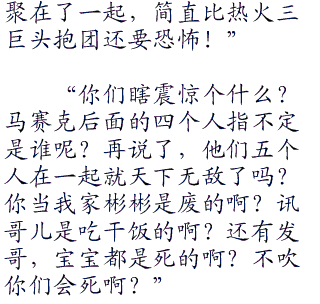 聚在了一起，简直比热火三
巨头抱团还要恐怖！”
“你们瞎震惊个什么？
马赛克后面的四个人指不定
是谁呢？再说了，他们五个
人在一起就天下无敌了吗？
你当我家彬彬是废的啊？讯
哥儿是吃干饭的啊？还有发
哥，宝宝都是死的啊？不吹
你们会死啊？”